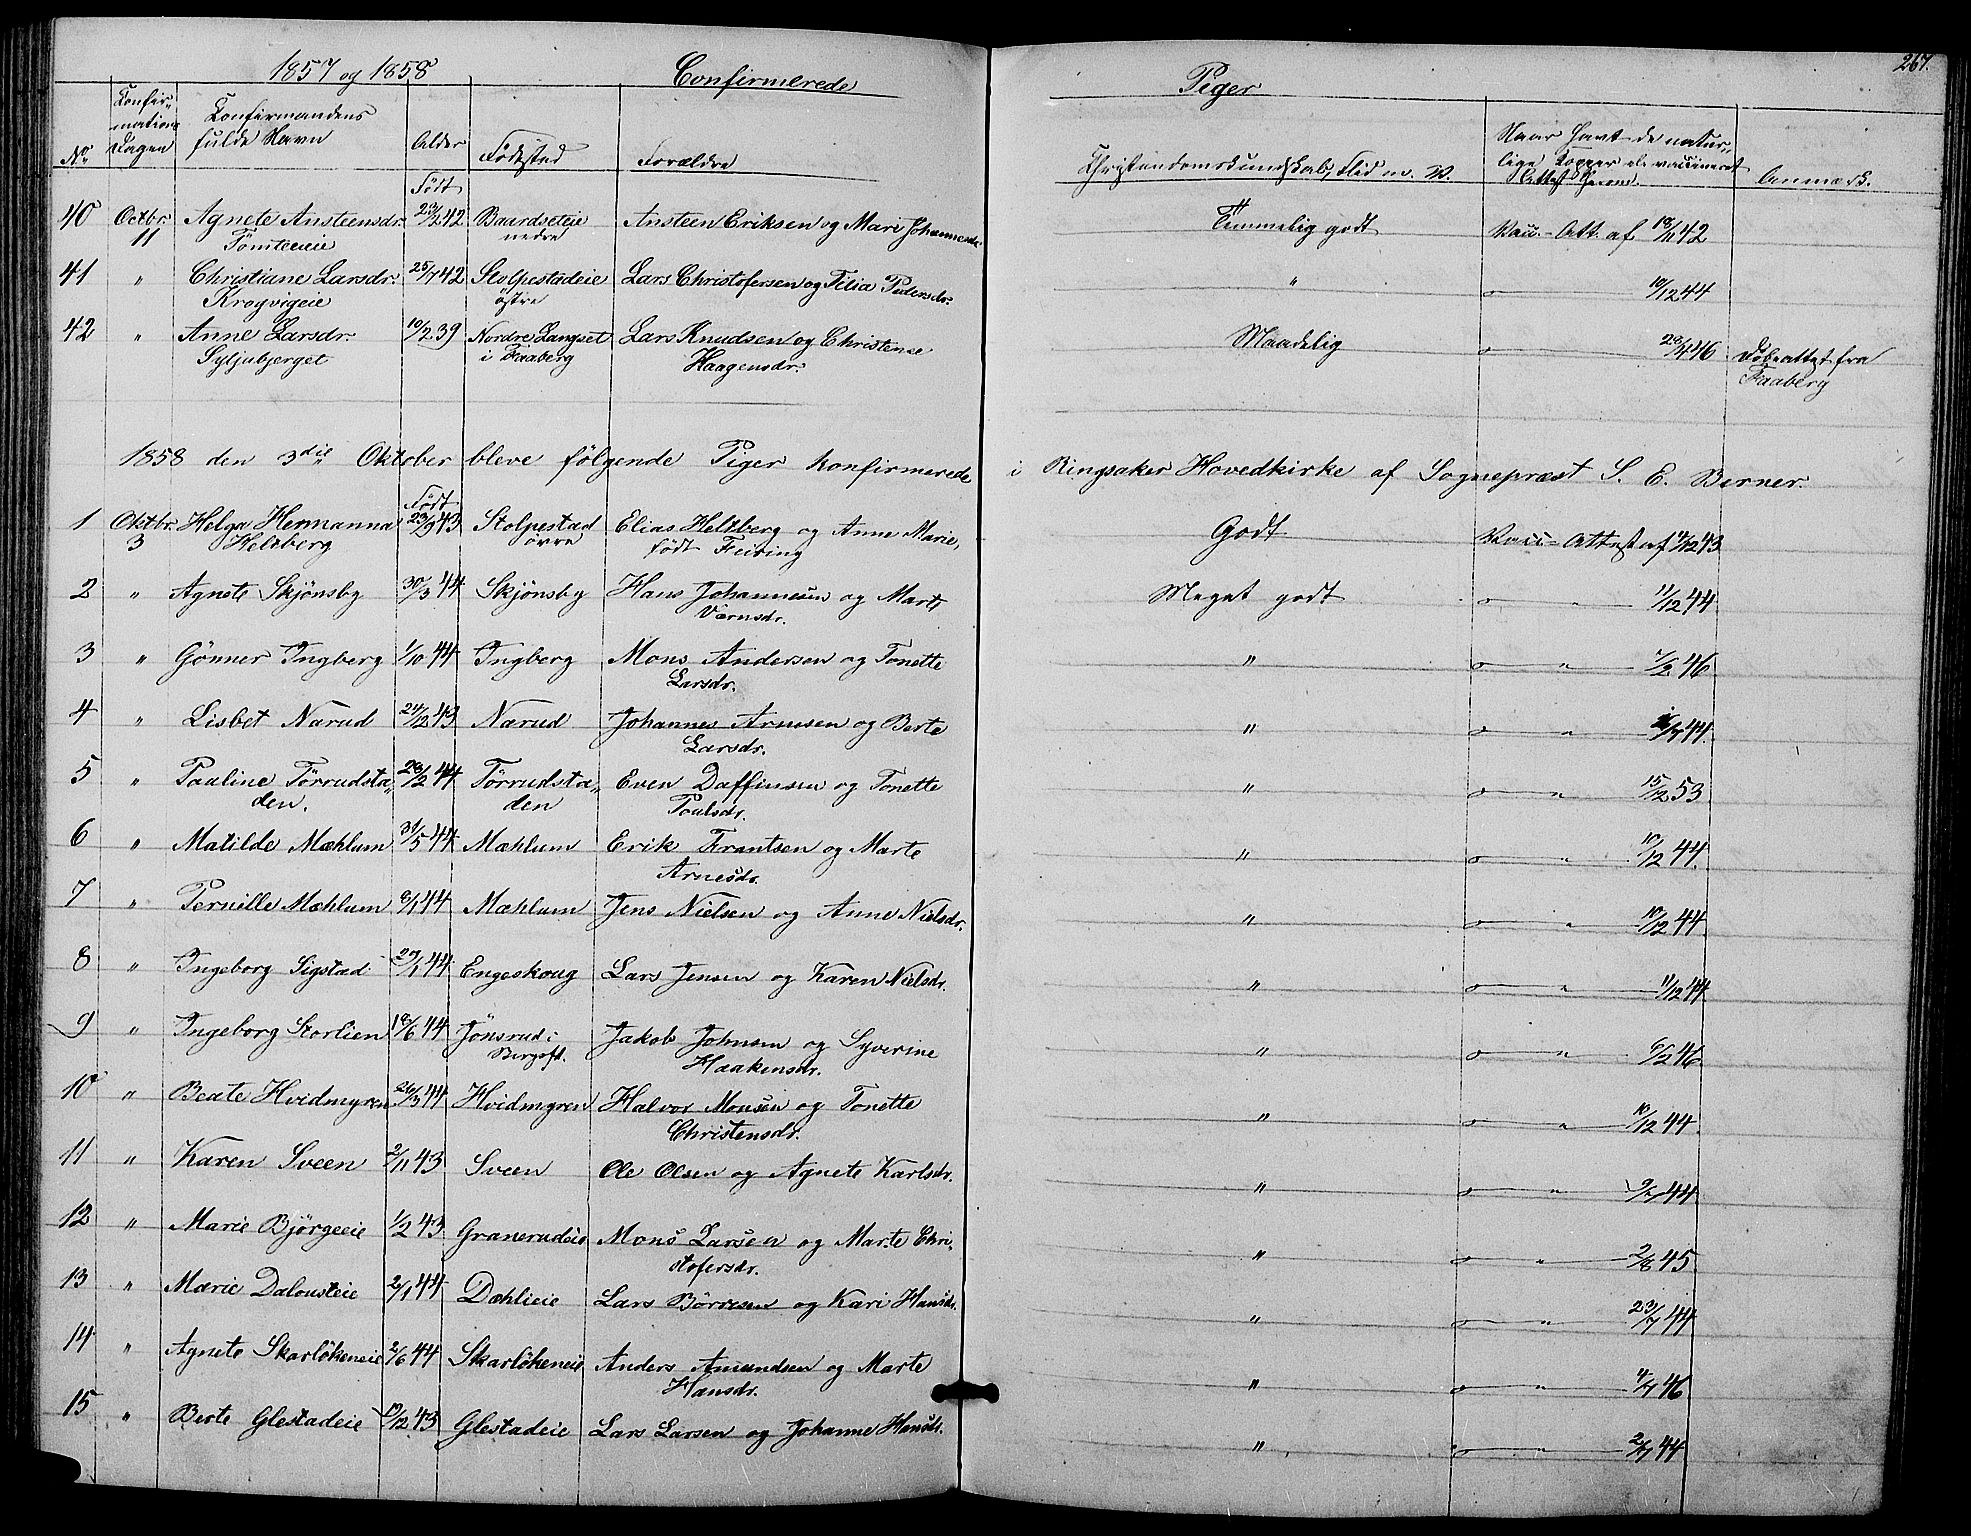 1857 og 1858 Confirmerede Piger 267.
No Konfirmations Dagen Konfirmandens fulde Navn Alder Födested Forældre Christendomskundskab, Flid m. V. Naar havt de naturlige Kopper el. vaccineret Attest herom. Anmærk.
Födt
40 Octbr. 11 Agnete Ansteensdr. 42 Baardseteie Ansteen Eriksen og Mari Johannesdr. Temmelig godt Vacc.-Att. af 42
Tömteeie nedre
41 " Christiane Larsdr. 25/7 42 Stolpestadeie Lars Christofersen og Filia Pedersdr. " " 10/12 44
Krogvigeie östre
42 " Anne Larsdr. 10/2 39 Nordre Langset Lars Knudsen og Christense Maadelig " 46 Döbeattest fra
Syljubjerget i Faaberg Haagensdr. Faaberg
1858 den 3die Oktober bleve fölgende Piger konfirmerede i Ringsaker Hovedkirke af Sognepræst S. E. Berner.
Födt
1 Oktbr. 3 Helga Hermanna 23/9 43 Stolpestad Elias Heltberg og Anne Marie, Godt Vacc-Attest af 43
Heltberg övre födt Feiring
2 " Agnete Skjönsby 30/3 44 Skjönsby Hans Johannesen og Marte Meget godt " " 11/12 44
Værnsdr.
3 " Gönner Ingberg 1/10 44 Ingberg Mons Andersen og Tonette " " " 7/2 46
Larsdr.
4 " Lisbet Narud 24/12 43 Narud Johannes Arnesen og Berte " " " 44
Larsdr.
5 " Pauline Törrudsta„ 28/2 44 Törrudsta„ Even Daffinsen og Tonette " " " 15/12 53
den. den Poulsdr.
6 " Matilde Mæhlum 31/5 44 Mæhlum Erik Frantsen og Marte " " " 10/12 44.
Arnesdr.
7 " Pernille Mæhlum 8/1 44 Mæhlum Jens Nielsen og Anne Nielsdr. " " " 10/12 44
8 " Ingeborg Sigstad 29/1 44 Engeskoug Lars Jensen og Karen Nielsdr. " " " 11/12 44
9 " Ingeborg Storlien 18/6 44 Jönsrud i Jakob Johnsen og Syverine " " " 6/2 46
Bergsft. Haakensdr.
10 " Beate Hvidmyren 26/3 44 Hvidmyren Halvor Monsen og Tonette " " " 10/12 44
Christensdr.
11 " Karen Sveen 2/11 43 Sveen Ole Olsen og Agnete Karlsdr. " " " 9/7 44
12 " Marie Björgeeie 1/2 43 Granerudeie Mons Larsen og Marte Chri- " " " 2/8 45
stofersdr.
13 " Marie Dalousteie 2/1 44 Dæhlieie Lars Börresen og Kari Hansdr. " " " 23/7 44
14 " Agnete Skarlökeneie 2/6 44 Skarlökeneie Anders Amundsen og Marte " " " 4/7 46
Hansdr.
15 " Berte Glestadeie 19/12 43 Glestadeie Lars Larsen og Johanne Hansdr. " " " 2/7 44